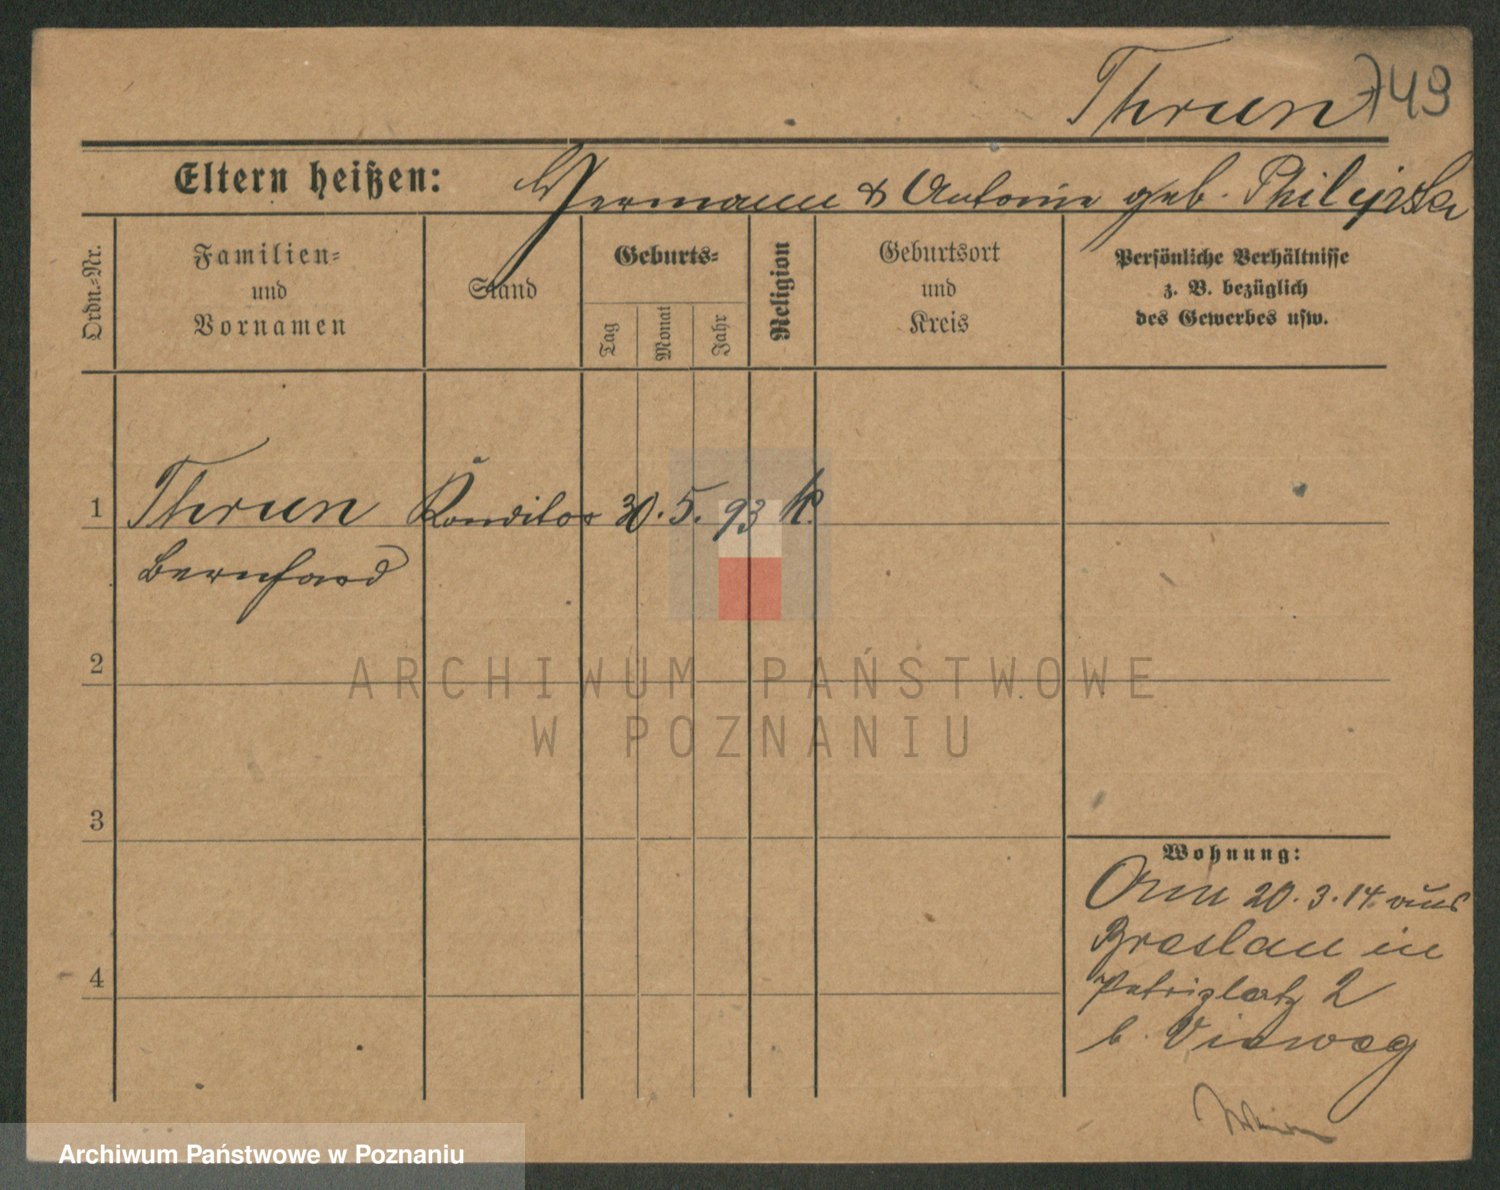 Thrun 749
Eltern heißen: Hermann & Antonie geb. Philipski
Ordn.-Nr.
Familien-
und
Vornamen
Stand
Geburts-
Tag
Monat
Jahr
Religion
Geburtsort
und
Kreis
Persönliche Verhältnisse
z. B. bezüglich
des Gewerbes usw.
1 Thrun Konditor 30. 5. 93 k.
Bernhard
2
ARCHIWUM PAŃSTWOWE
W POZNANIU
3
Wohnung:
20. 3. 14. aus
Breslau in
Petriplatz 2
4
b. Vieweg
Archiwum Państwowe w Poznaniu